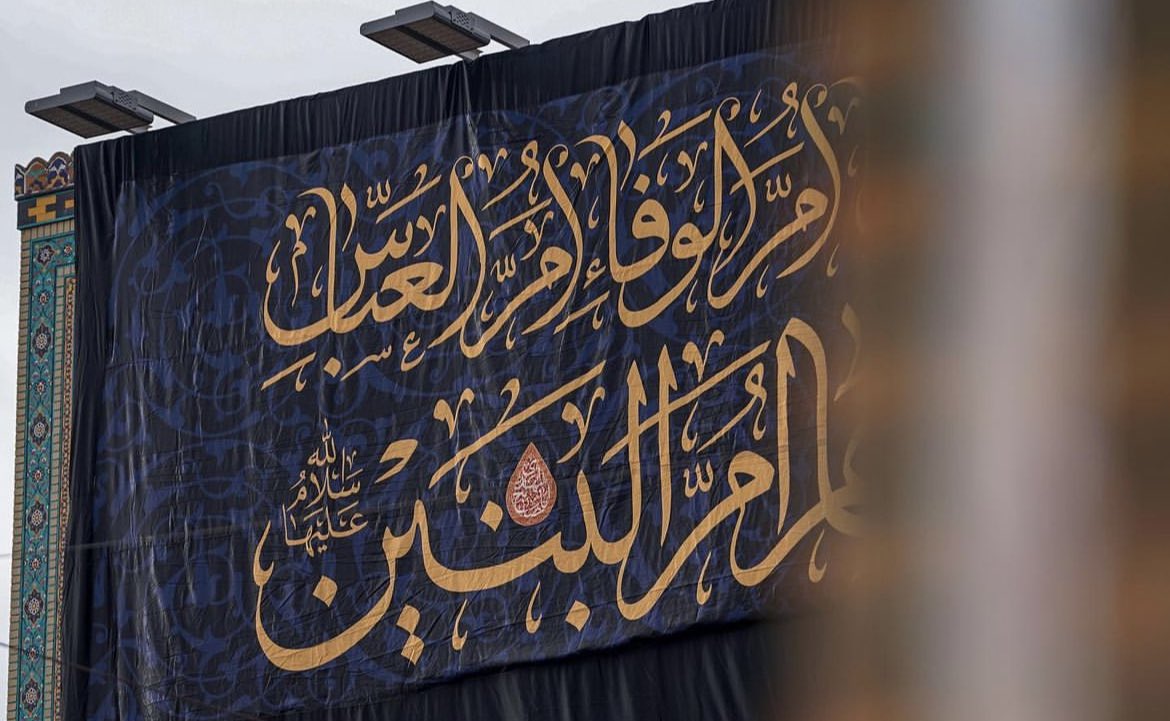 أُمُّ الوَفَاءِ أُمُّ العَبَّاسِ
أُمُّ البَنِيْن
سَلَامُ اللّٰه عَلَيْهَا